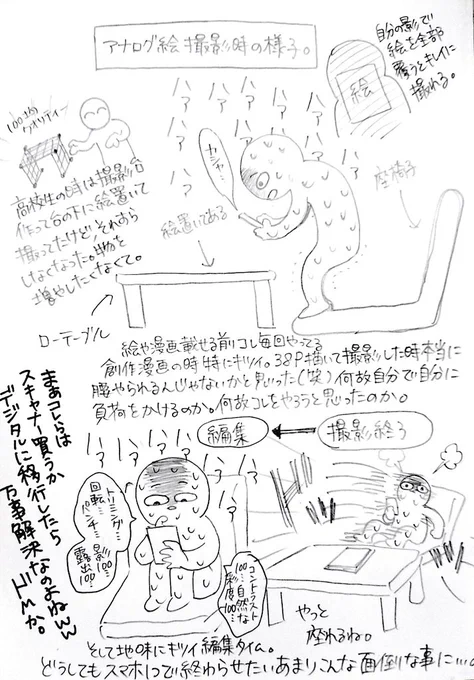 アナログ絵撮影時の様子。
自分の影で
絵を全部
覆うとキレイに
撮れる。
絵
100均
クオリティー
ハァ
ハァ
ハァ
ハァ
ハァ
ハァ
ハァ
カシャ
座椅子
高校生の時は撮影台
作って台の下に絵置いて
撮ってたけど、それすら
しなくなった。物を
増やしたくなくて。
絵置いてある
ローテーブル
絵や漫画載せる前にコレ毎回やってる
創作漫画の時特にキツイ。38P描いて撮影した時本当に
腰やられるんじゃないかと思った(笑)何故自分で自分に
負荷をかけるのか。何故コレをやろうと思ったのか。
撮影終了
編集
ハァ
ハァ
ハァ
ハァ
トリミング…
回転…
パンチ…
影100…
露出100…
コントラスト
100…自然な
彩度100…
やっと
座れるね。
まぁコレらは
スキャナー買うか
デジタルに移行したら
万事解決なのよねww
ドMか。
そして地味にキツイ編集タイム。
どうしてもスマホ1つで終わらせたいあまりこんな面倒な事に…。